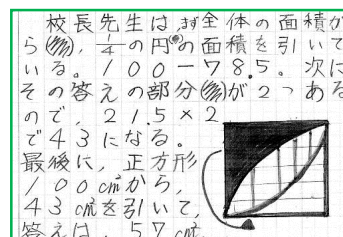 校長先生はまず全体の面積か
ら、1/4の円の面積を引いて
いる。100－78.5。次に
その答えの部分が2つある
ので、21.5×2
で43になる。
最後に、正方形
100cm²から、
43cm²を引いて、
答えは、57cm²